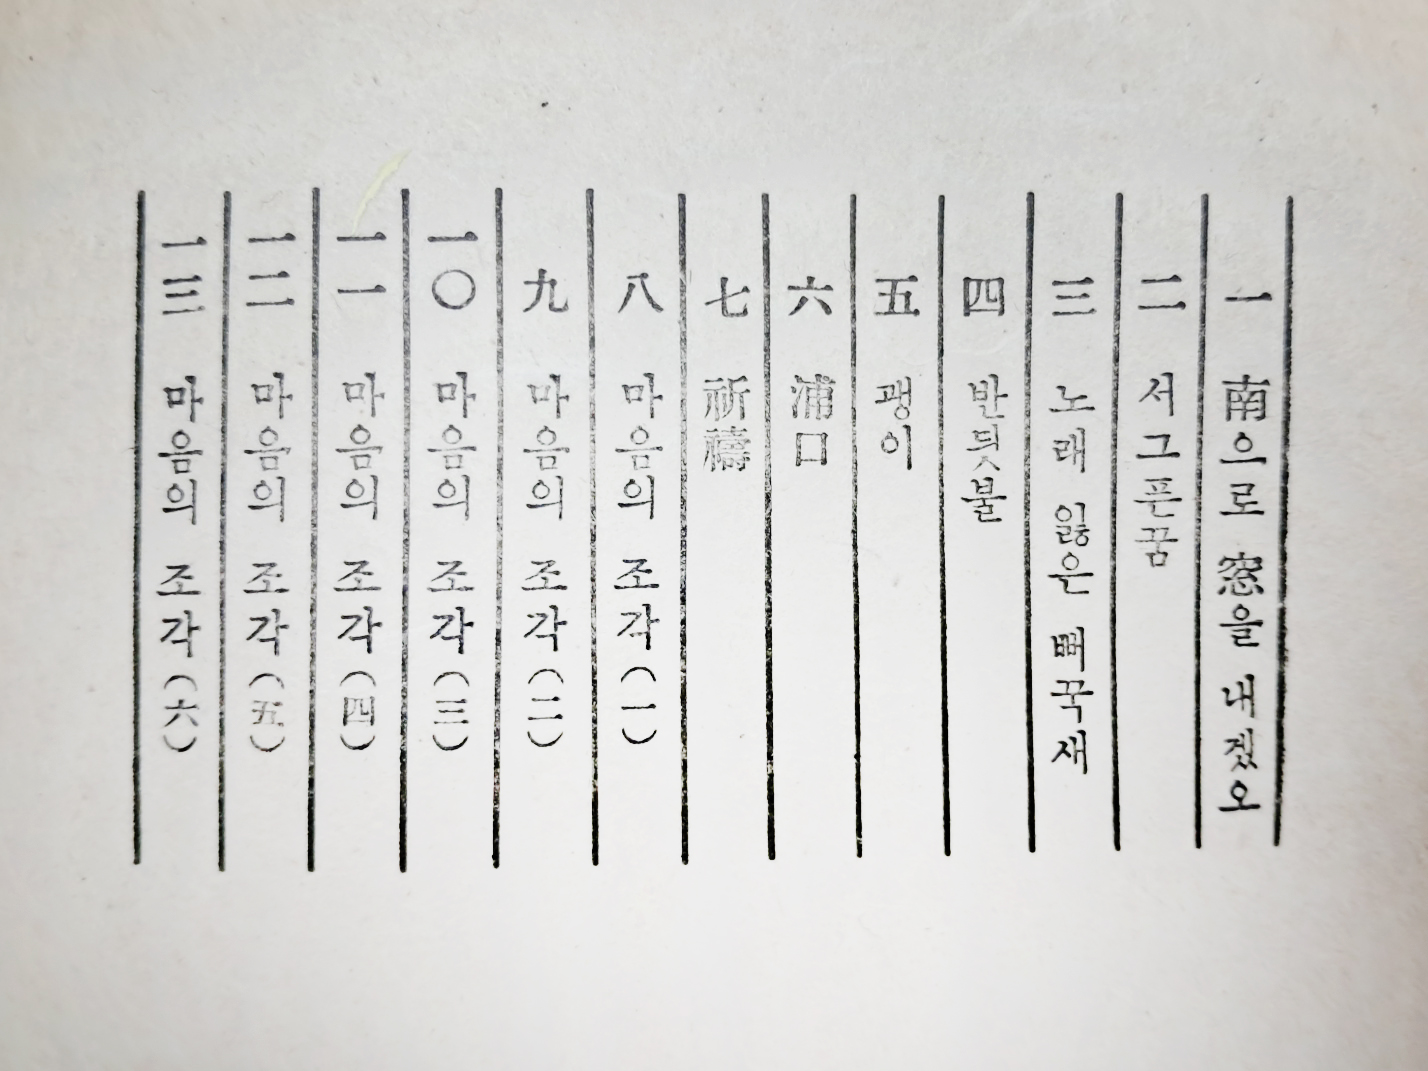 一 南으로 窓을 내겠오
二 서그픈꿈
三 노래 잃은 뻐꾹새
四 반딋불
五 괭이
六 浦口
七 祈禱
八 마음의 조각(一)
九 마음의 조각(二)
一〇 마음의 조각(三)
一一 마음의 조각(四)
一二 마음의 조각(五)
一三 마음의 조각(六)